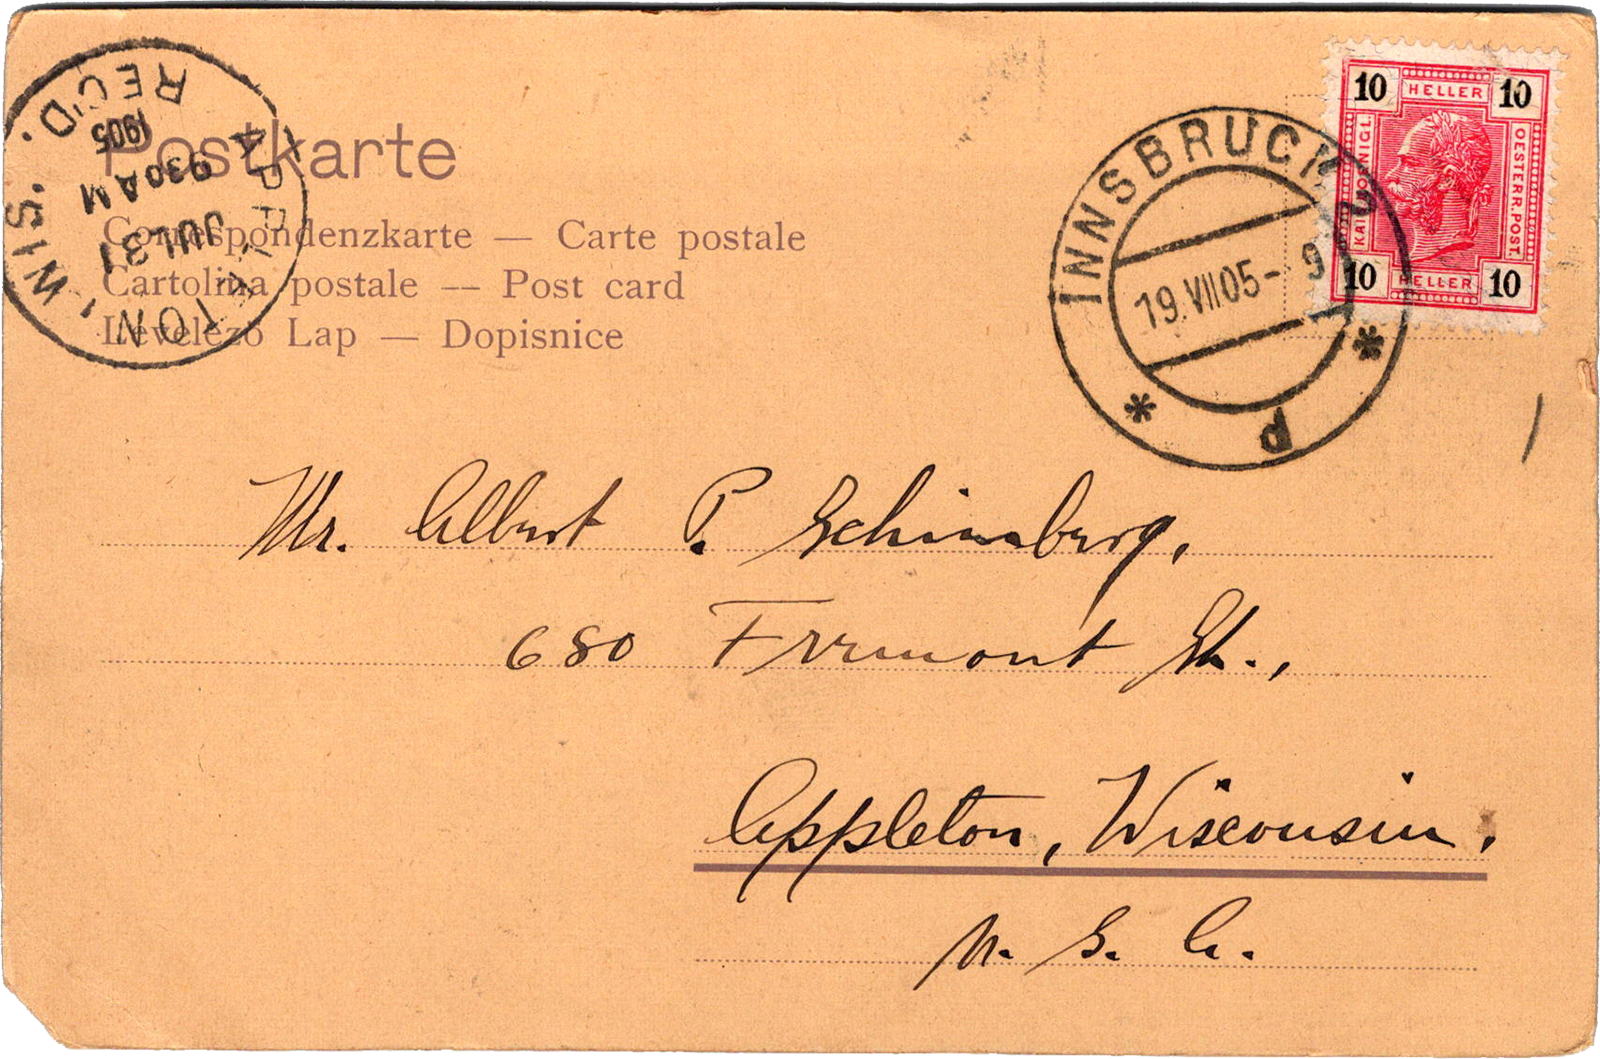 Postkarte
Correspondenzkarte — Carte postale
Cartolina postale — Post card
Levelező Lap — Dopisnice
APPLETON, WIS.
JUL 31
930 AM
1905
REC'D.
INNSBRUCK 2
19.VII.05- 9
* P *
10 HELLER 10
KAIS. KOENIGL.
OESTERR. POST.
10 HELLER 10
Mr. Albert P. Schimberg,
680 Fremont St.,
Appleton, Wisconsin.
U. S. A.